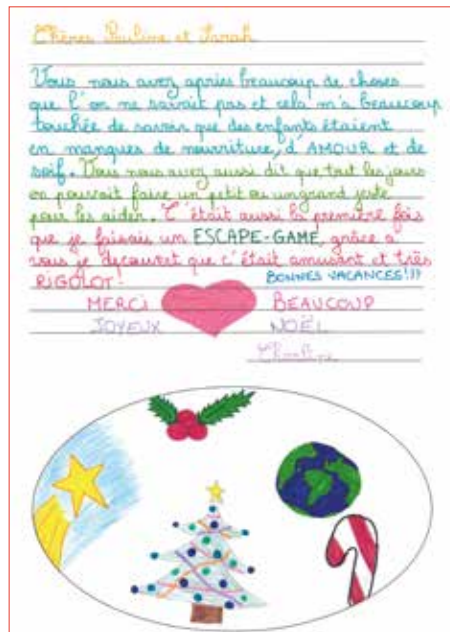 Chères Pauline et Sarah
Vous nous avez apries beaucoup de choses
que l'on ne savait pas et cela m'a beaucoup
touchée de savoir que des enfants étaient
en manques de nourriture, d'AMOUR et de
soif. Vous nous avez aussi dit que tout les jours
on pouvait faire un petit ou un grand jeste
pour les aider. C'était aussi la première fois
que je faisais un ESCAPE-GAME, grâce a
vous je decouvret que c'était amusant et très
RIGOLOT!
BONNES VACANCES!!!
MERCI BEAUCOUP
JOYEUX NOËL